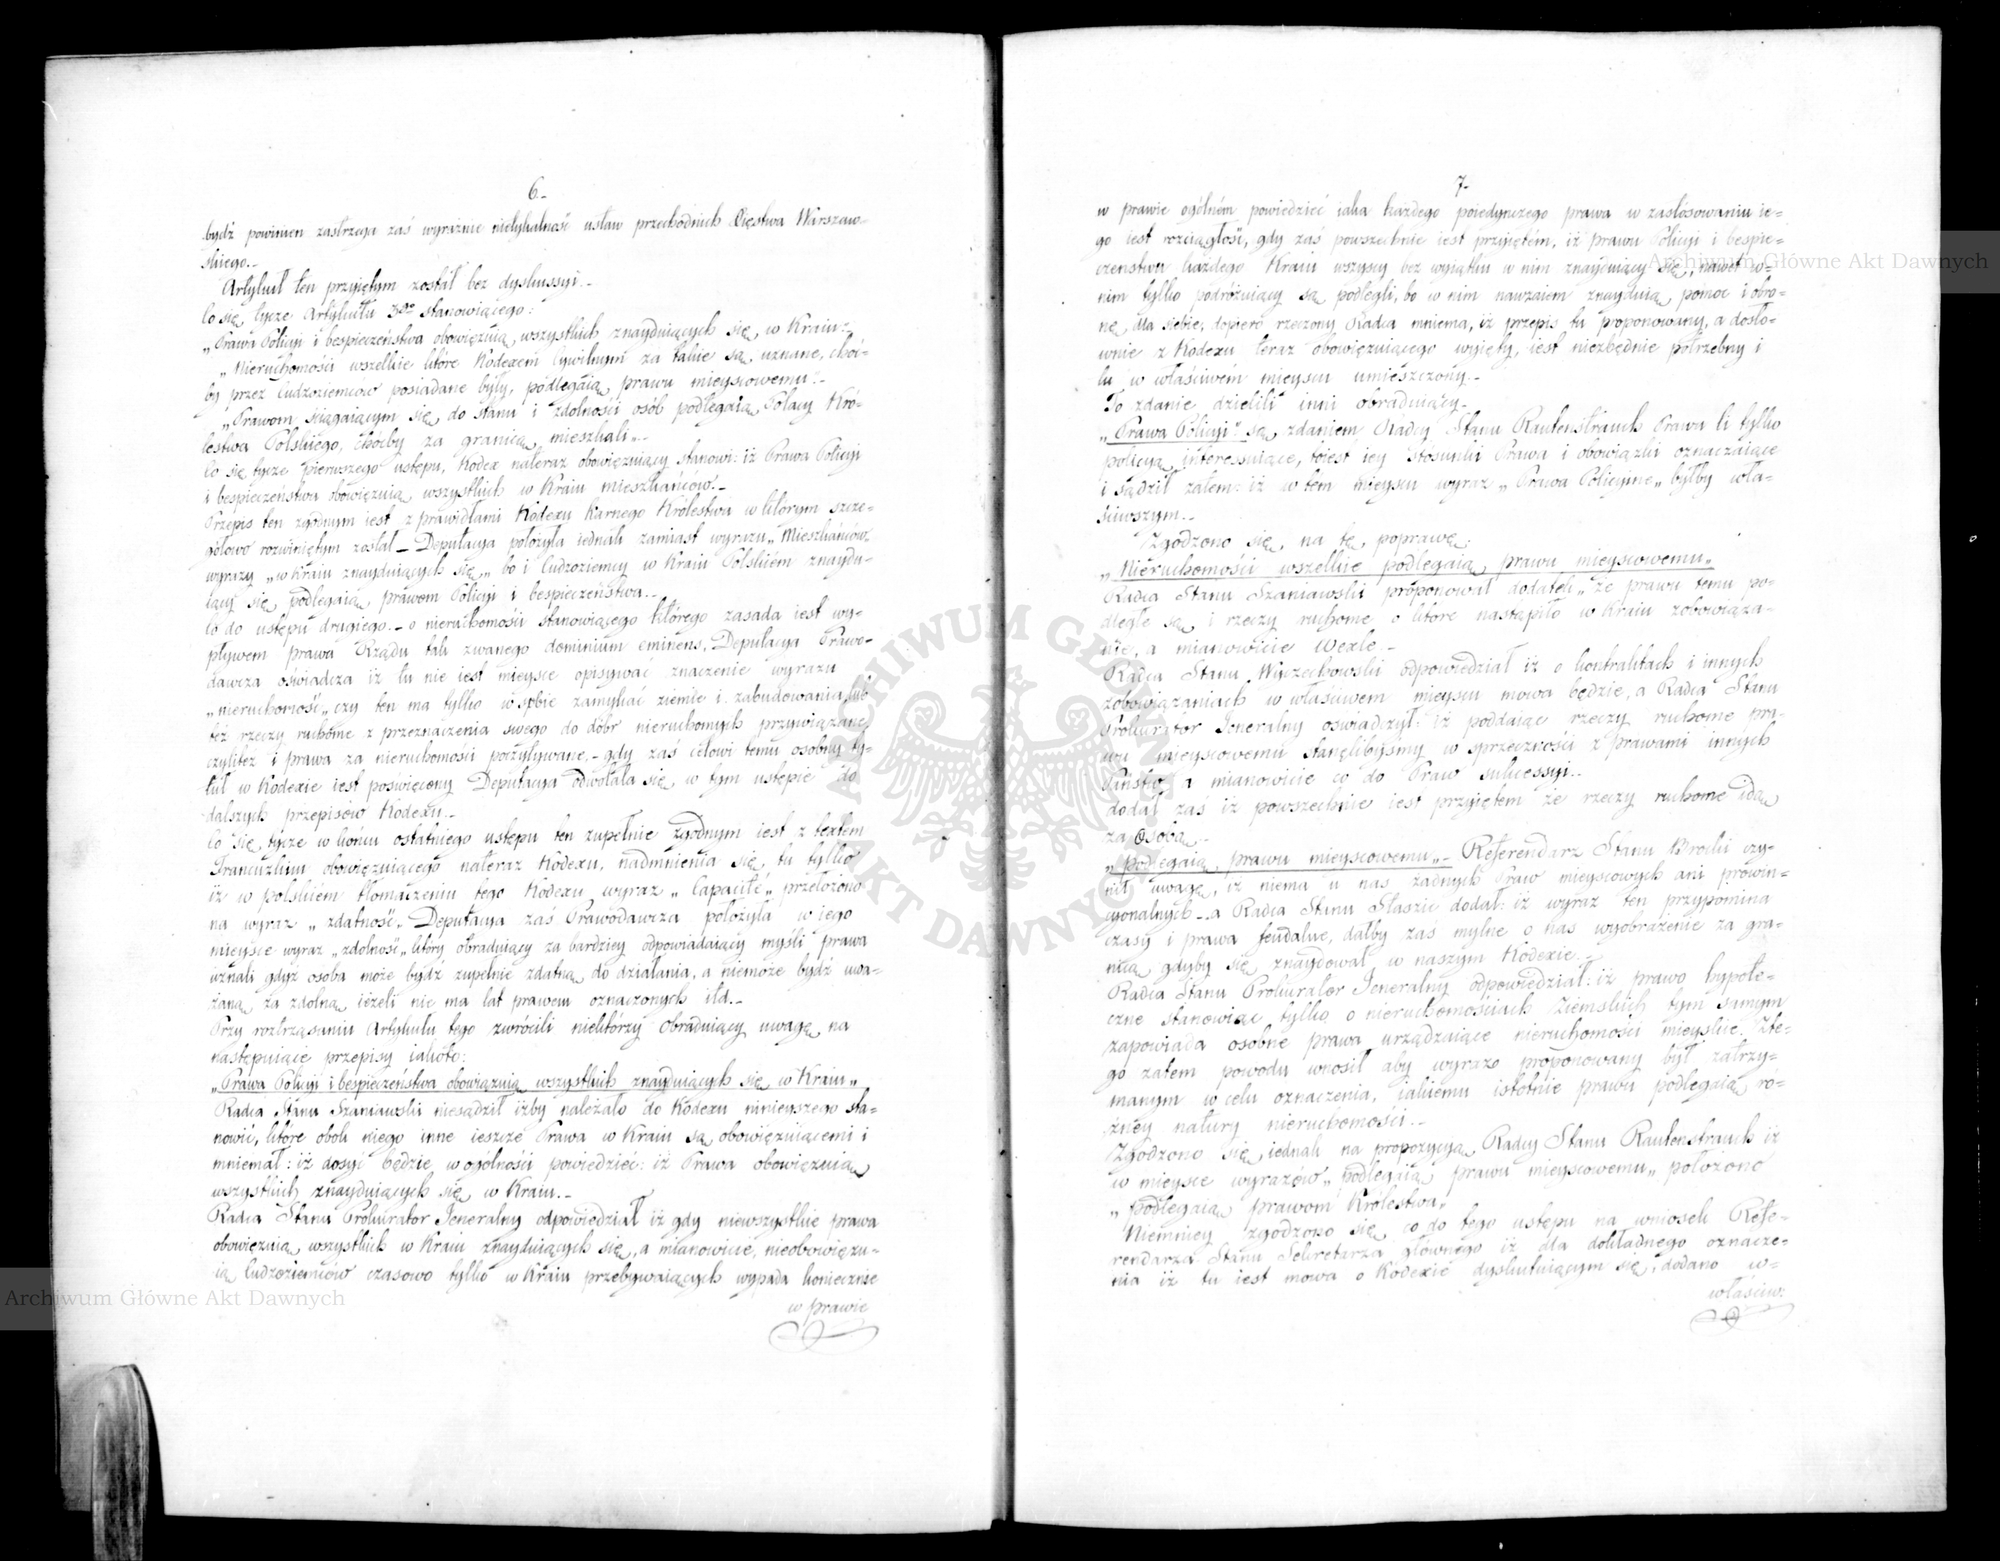 6.
bydź powinien zastrzega zaś wyraźnie nietykalność ustaw przechodnich Xięstwa Warszaw-
skiego.-
Artykuł ten przyiętym został bez dyskussyi.-
Co się tycze Artykułu 3go stanowiącego:
„Prawa Policyi i bespieczeństwa obowięzuią wszystkich znayduiących się w Kraiu:-
„Nieruchomości wszelkie które Kodexem Cywilnym za takie są uznane, choć-
by przez Cudzoziemców posiadane były, podlegaią prawu mieyscowemu:-
„Prawom ściągaiącym się do stanu i zdolności osób podlegaią Polacy Kró-
lestwa Polskiego, choćby za granicą mieszkali„-
Co się tycze pierwszego ustępu, Kodex nateraz obowięzuiący stanowi: iż Prawa Policyi
i bespieczeństwa obowięzuią wszystkich w Kraiu mieszkańców.-
Przepis ten zgodnym iest z prawidłami Kodexu Karnego Królestwa w którym szcze-
gółowo rozwiniętym został - Deputacya położyła iednak zamiast wyrazu „Mieszkańców„
wyrazy „w Kraiu znayduiących się„ bo i Cudzoziemcy w Kraiu Polskiém znaydu-
iący się podlegaią prawom Policyi i bespieczeństwa.-
Co do ustępu drugiego - o nieruchomości stanowiącego którego zasada iest wy-
pływem prawa Rządu tak zwanego dominium eminens, Deputacya Prawo-
dawcza oświadcza iż tu nie iest mieysce opisywać znaczenie wyrazu
„nieruchomość„ czy ten ma tylko w sobie zamykać ziemie i zabudowania, lub
też rzeczy ruchome z przeznaczenia swego do dóbr nieruchomych przywiązane,
czyliteż i prawa za nieruchomości poczytywane - gdy zaś celowi temu osobny ty-
tuł w Kodexie iest poświęcony Deputacya odwołała się w tym ustępie do
dalszych przepisów Kodexu.-
Co się tycze w końcu ostatniego ustępu ten zupełnie zgodnym iest z textem
Francuzkim obowięzuiącego nateraz Kodexu, nadmienia się tu tylko
iż w polskiém tłomaczeniu tego Kodexu wyraz „Capacité„ przełożono
na wyraz „zdatność„ Deputacya zaś Prawodawcza położyła w iego
mieysce wyraz „zdolność„ który obraduiący za bardziey odpowiadaiący myśli prawa
uznali gdyż osoba może bydź zupełnie zdatną do działania, a niemoże bydź uwa-
żaną za zdolną ieżeli nie ma lat prawem oznaczonych itd.-
Przy roztrząsaniu Artykułu tego zwrócili niektórzy obraduiący uwagę na
następuiące przepisy iakoto:
„Prawa Policyi i bespieczeństwa obowiązuią wszystkich znayduiących się w Kraiu„
Radca Stanu Szaniawski niesądził iżby należało do Kodexu ninieyszego sta-
nowić, które obok niego inne ieszcze Prawa w Kraiu są obowięzuiącemi i
mniemał: iż dosyć będzie w ogólności powiedzieć: iż Prawa obowięzuią
wszystkich znayduiących się w Kraiu.-
Radca Stanu Prokurator Jeneralny odpowiedział iż gdy niewszystkie prawa
obowięzuią wszystkich w Kraiu znayduiących się, a mianowicie, nieobowięzu-
ią Cudzoziemców czasowo tylko w Kraiu przebywaiących wypada koniecznie
w prawie
7.
w prawie ogólném powiedzieć iaka każdego poiedynczego prawa w zastosowaniu ie-
go iest rozciągłość, gdy zaś powszechnie iest przyiętém, iż prawu Policyi i bespie-
czeństwu każdego Kraiu wszyscy bez wyiątku w nim znayduiący się, nawet w-
nim tylko podróżuiący są podlegli, bo w nim nawzaiem znayduią pomoc i obro-
nę dla siebie; dopiero rzeczony Radca mniema, iż przepis tu proponowany, a dosło-
wnie z Kodexu teraz obowięzuiącego wyięty, iest niezbędnie potrzebny i
tu w właściwém mieyscu umieszczony.-
To zdanie dzielili inni obraduiący.-
„Prawa Policyi" są zdaniem Radcy Stanu Rautenstrauch Prawa li tylko
policyą interessuiące, toiest iey stosunki Prawa i obowiązki oznaczaiące
i sądził zatem: iż w tem mieyscu wyraz „Prawa Policyine„ byłby wła-
ściwszym.-
Zgodzono się na tę poprawę:
„Nieruchomości wszelkie podlegaią prawu mieyscowemu„
Radca Stanu Szaniawski proponował dodatek „że prawu temu po-
dległe są i rzeczy ruchome o które nastąpiło w Kraiu zobowiąza-
nie, a mianowicie Wexle.-
Radca Stanu Wyczechowski odpowiedział iż o kontraktach i innych
zobowiązaniach w właściwem mieyscu mowa będzie, a Radca Stanu
Prokurator Jeneralny oświadczył: iż poddaiąc rzeczy ruchome pra-
wu mieyscowemu stanęlibyśmy w sprzeczności z prawami innych
Państw, a mianowicie co do Praw sukcessyi.-
dodał zaś iż powszechnie iest przyiętem że rzeczy ruchome idą
za osobą.-
„podlegaią prawu mieyscowemu„- Referendarz Stanu Brocki czy-
nił uwagę, iż niema u nas żadnych Praw mieyscowych ani prowin-
cyonalnych - a Radca Stanu Staszic dodał: iż wyraz ten przypomina
czasy i prawa feudalne, dałby zaś mylne o nas wyobrażenie za gra-
nicą gdyby się znaydował w naszym Kodexie.-
Radca Stanu Prokurator Jeneralny odpowiedział: iż prawo hypote-
czne stanowiąc tylko o nieruchomościach Ziemskich tym samym
zapowiada osobne prawa urządzaiące nieruchomości mieyskie. Zte-
go zatem powodu wnosił aby wyraz proponowany był zatrzy-
manym w celu oznaczenia, iakiemu istotnie prawu podlegaią ró-
żney natury nieruchomości.-
Zgodzono się iednak na propozycyą Radcy Stanu Rautenstrauch iż
w mieysce wyrazów „podlegaią prawu mieyscowemu„ położono
„podlegaią prawom Królestwa„
Niemniey zgodzono się co do tego ustępu na wniosek Refe-
rendarza Stanu Sekretarza głównego iż dla dokładnego oznacze-
nia iż tu iest mowa o Kodexie dyskutuiącym się, dodano w-
właściw:
Archiwum Główne Akt Dawnych
Archiwum Główne Akt Dawnych
ARCHIWUM GŁÓWNE AKT DAWNYCH